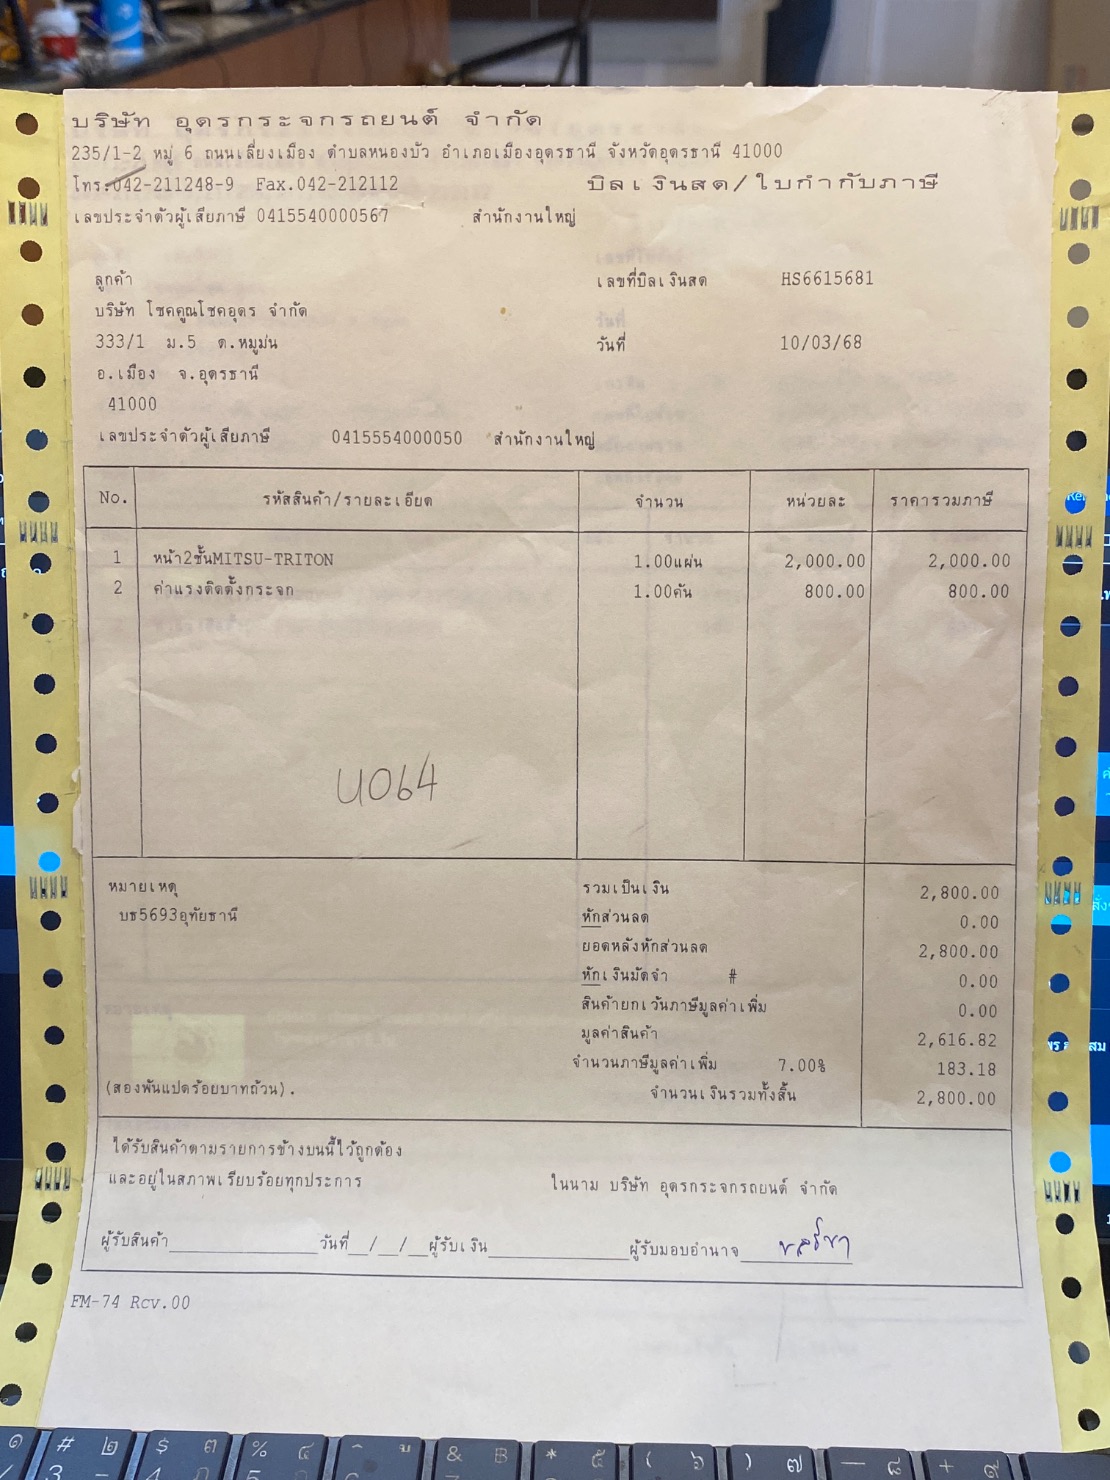 บริษัท อุดรกระจกรถยนต์ จำกัด
235/1-2 หมู่ 6 ถนนเลี่ยงเมือง ตำบลหนองบัว อำเภอเมืองอุดรธานี จังหวัดอุดรธานี 41000
โทร.042-211248-9 Fax.042-212112 บิลเงินสด/ใบกำกับภาษี
เลขประจำตัวผู้เสียภาษี 0415540000567 สำนักงานใหญ่
ลูกค้า เลขที่บิลเงินสด HS6615681
บริษัท โชคคูณโชคอุดร จำกัด
333/1 ม.5 ต.หมูม่น วันที่ 10/03/68
อ.เมือง จ.อุดรธานี
41000
เลขประจำตัวผู้เสียภาษี 0415554000050 สำนักงานใหญ่
No. รหัสสินค้า/รายละเอียด จำนวน หน่วยละ ราคารวมภาษี
1 หน้า2ชั้นMITSU-TRITON 1.00แผ่น 2,000.00 2,000.00
2 ค่าแรงติดตั้งกระจก 1.00คัน 800.00 800.00
U064
หมายเหตุ รวมเป็นเงิน 2,800.00
บธ5693อุทัยธานี หักส่วนลด 0.00
ยอดหลังหักส่วนลด 2,800.00
หักเงินมัดจำ # 0.00
สินค้ายกเว้นภาษีมูลค่าเพิ่ม 0.00
มูลค่าสินค้า 2,616.82
จำนวนภาษีมูลค่าเพิ่ม 7.00% 183.18
(สองพันแปดร้อยบาทถ้วน). จำนวนเงินรวมทั้งสิ้น 2,800.00
ได้รับสินค้าตามรายการข้างบนนี้ไว้ถูกต้อง
และอยู่ในสภาพเรียบร้อยทุกประการ ในนาม บริษัท อุดรกระจกรถยนต์ จำกัด
ผู้รับสินค้า วันที่ / / ผู้รับเงิน ผู้รับมอบอำนาจ
FM-74 Rev.00